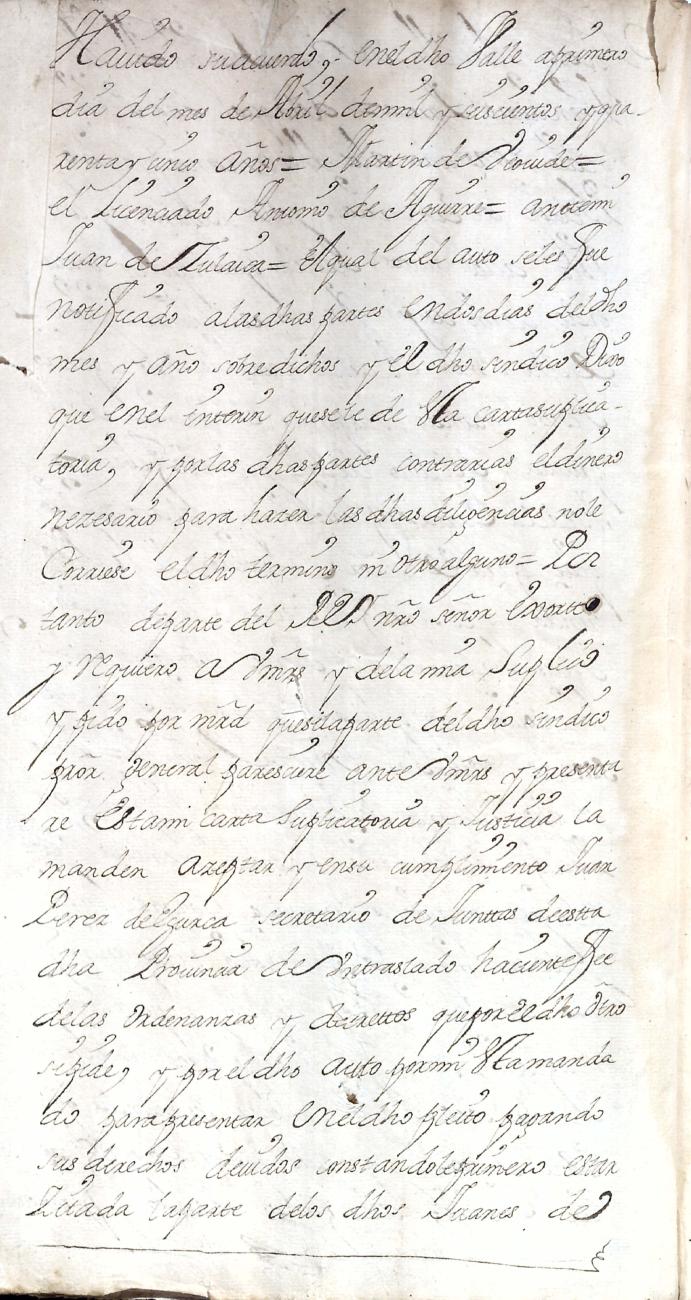 Hauido su acuerdo, en el dho Valle a primero
dia del mes de Abril de mil y seiscientos y qua-
renta y cinco años = Martin de =
el Licenciado Antonio de Aguirre = antemi
Juan de Zulaica = El qual del auto seles fue
notificado alas dhas partes en dos dias del dho
mes y año sobre dichos y el dho sindico Dixo
que en el interin que sele de la carta suplica-
toria, y por las dhas partes contrarias el dinero
nezesario para hazer las dhas diligencias no le
Corriese el dho termino ni otro alguno = Por
tanto de parte del Rey nro señor exorto
y requiero a Vmrs y de la mia Suplico
y pido por mrd que si la parte del dho sindico
pror general paresciere ante Vmrs y presenta
re esta mi carta Suplicatoria y Justicia la
manden azeptar y en su cumplimiento Juan
Perez de Egurca secretario de Junttas de estta
dha Prouincia de Vn traslado haciente fee
de las Ordenanzas y decrettos que por el dho Otro
si pide, y por el dho auto por mi manda
do para presentar en el dho pleito pagando
sus derechos deuidos constandole primero estar
Zitada la parte de los dhos Juanes de